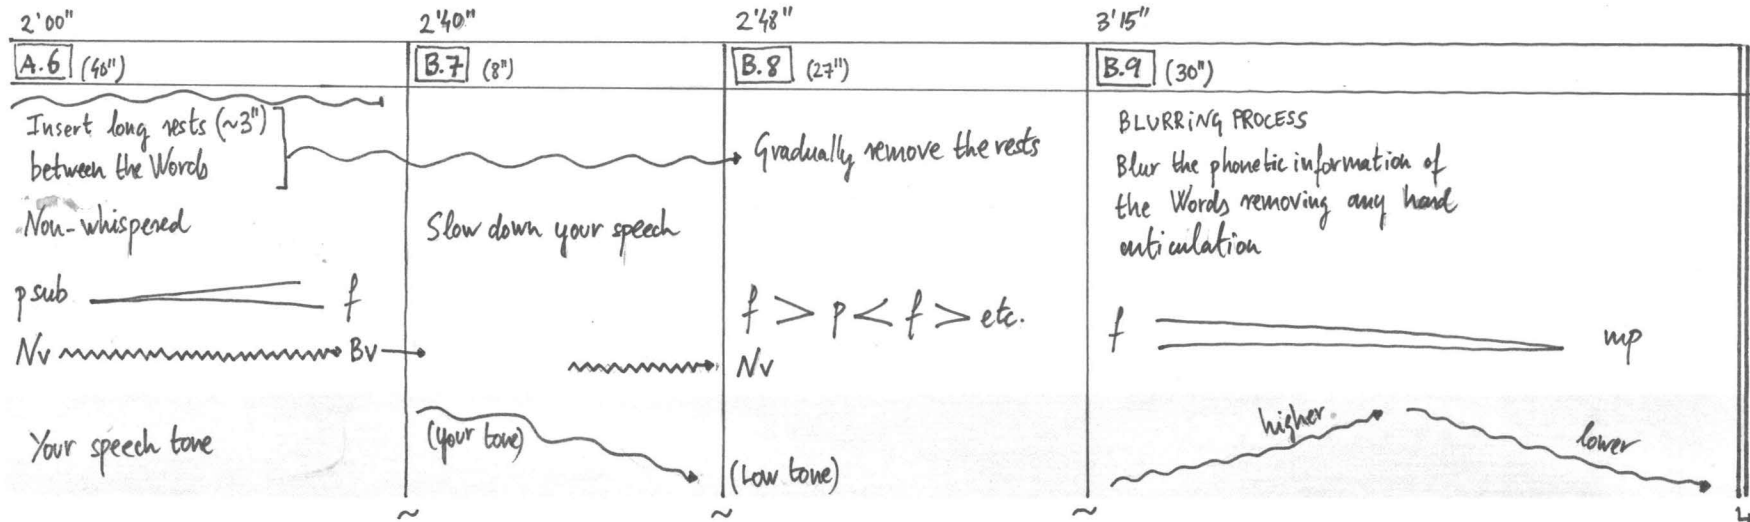 2'00"
2'40"
2'48"
3'15"
A.6 (40")
B.7 (8")
B.8 (27")
B.9 (30")
Insert long rests (~3")
between the Words
Non-whispered
p sub f
Nv Bv
Your speech tone
Slow down your speech
(your tone)
Gradually remove the rests
f > p < f > etc.
Nv
(Low tone)
BLURRING PROCESS
Blur the phonetic information of
the Words removing any hard
articulation
f mp
higher
lower